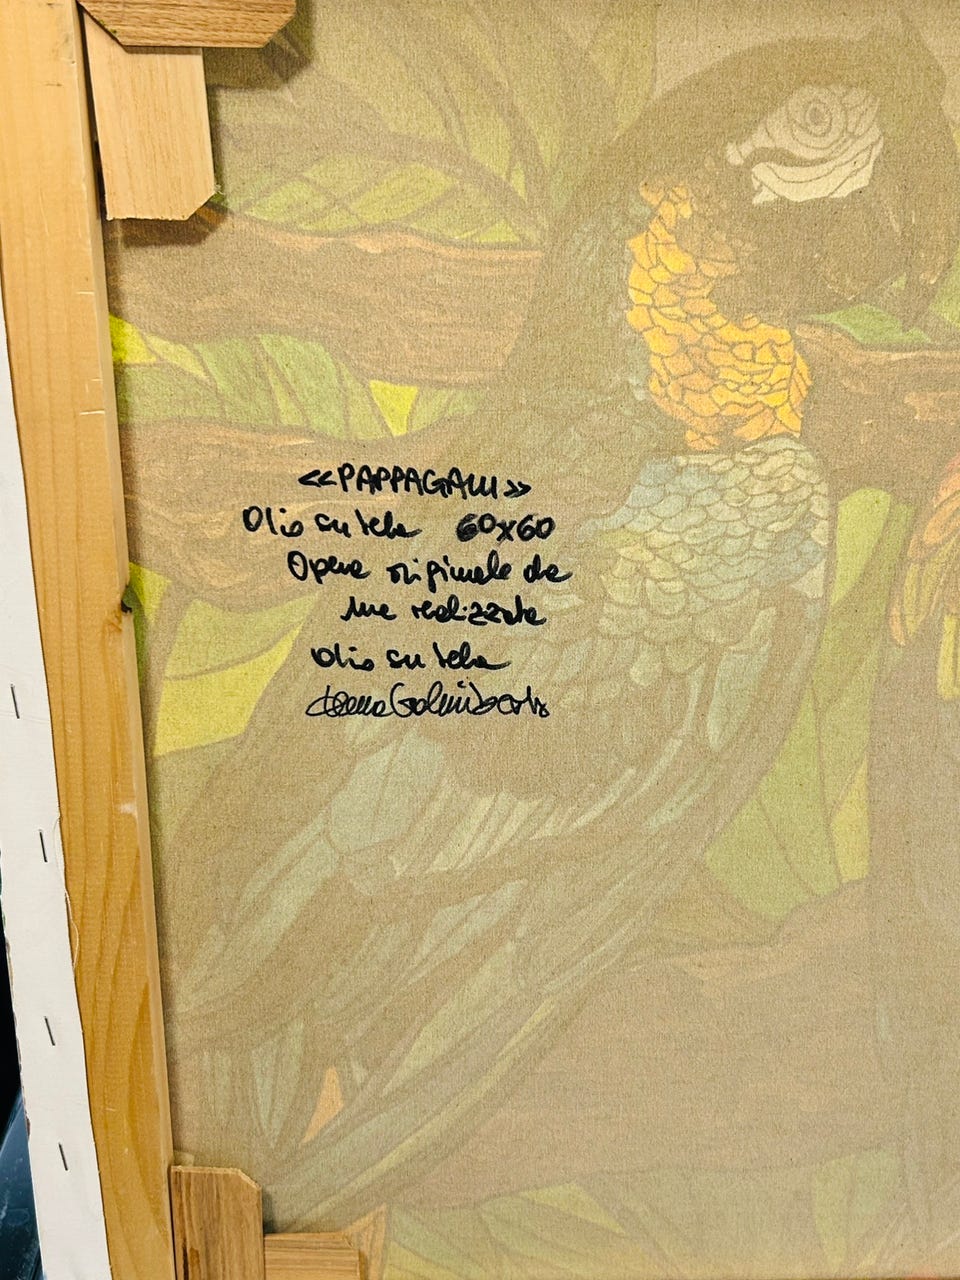 <<PAPPAGALLI>>
Olio su tela 60x60
Opera originale da
me realizzata
olio su tela